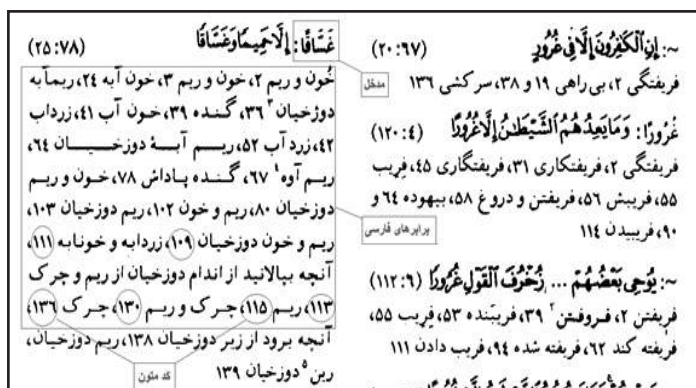 ~: إِنِ الْكَٰفِرُونَ إِلَّا فِي غُرُورٍ (٢٠:٦٧)
فریفتگی ٢، بی‌راهی ١٩ و ٣٨، سرکشی ١٣٦
غُرُورًا: وَمَا يَعِدُهُمُ الشَّيْطَٰنُ إِلَّا غُرُورًا (١٢٠:٤)
فریفتگی ٢، فریفتکاری ٣١، فریفتگاری ٤٥، فریب
٥٥، فریبش ٥٦، فریفتن و دروغ ٥٨، بیهوده ٦٤ و
٩٠، فریبیدن ١١٤
~: يُوحِي بَعْضُهُمْ ... زُخْرُفَ الْقَوْلِ غُرُورًا (١١٢:٦)
فریفتن ٢، فروفتن ٢ ٣٩، فریبنده ٥٣، فریب ٥٥،
فریفته کند ٦٢، فریفته شده ٩٤، فریب دادن ١١١
غَسَّاقًا: إِلَّا حَمِيمًا وَغَسَّاقًا (٢٥:٧٨)
مدخل
خون و ریم ٢، خون و ریم ٣، خون آبه ٢٤، ریمابه
دوزخیان ٣ ٣٦، گنده ٣٩، خون آب ٤١، زرداب
٤٢، زرد آب ٥٢، ریم آبهٔ دوزخیان ٦٤،
ریم آوه ٤ ٦٧، گنده پاداش ٧٨، خون و ریم
دوزخیان ٨٠، ریم و خون ١٠٢، ریم دوزخیان ١٠٣،
برابرهای فارسی
ریم و خون دوزخیان ١٠٩، زردابه و خونابه ١١١،
آنچه بپالاید از اندام دوزخیان از ریم و چرک
١١٣، ریم ١١٥، چرک و ریم ١٣٠، چرک ١٣٦،
آنچه برود از زیر دوزخیان ١٣٨، ریم دوزخیان،
رین ٥ دوزخیان ١٣٩
کد متون